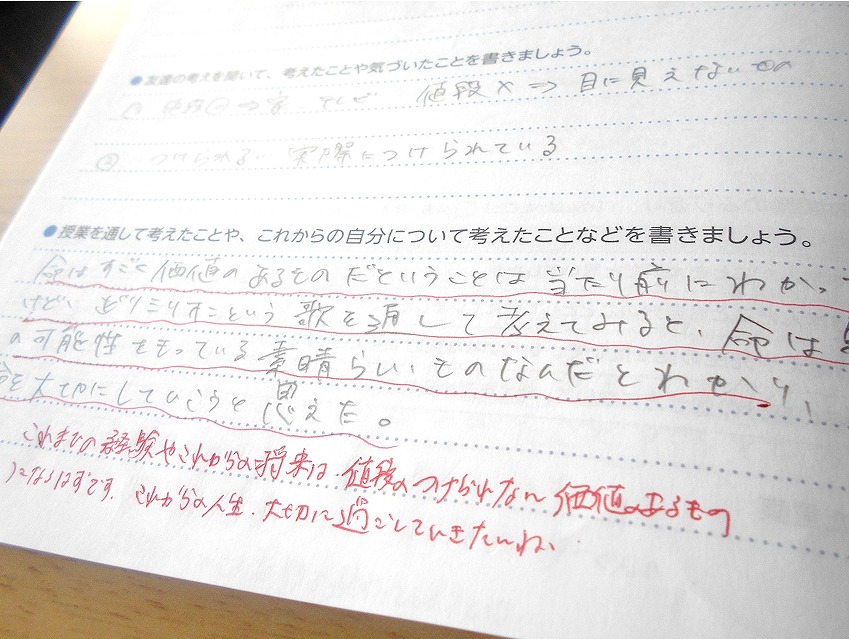 ●友達の考えを聞いて、考えたことや気づいたことを書きましょう。
値段× ⇒ 目に見えないもの
② つけられる 実際につけられている
●授業を通して考えたことや、これからの自分について考えたことなどを書きましょう。
命はすごく価値のあるものだということは当たり前にわかっ
けど、どりミりすこという歌を通して考えてみると、命は
の可能性をもっている素晴らしいものなんだとわかり、
を大切にしていこうと思えた。
これまでの経験やこれからの将来は、値段のつけられない価値のあるもの
になるはずです。これからの人生、大切に過ごしていきたいね。